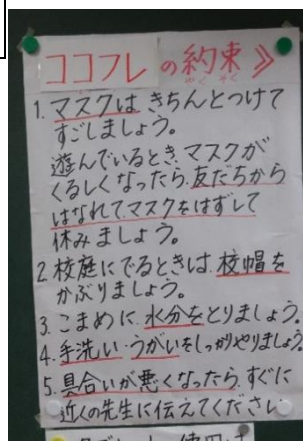 ココフレの約束》
やくそく
1. マスクは きちんとつけて
すごしましょう。
遊んでいるとき、マスクが
くるしくなったら、友だちから
はなれて、マスクをはずして
休みましょう。
2. 校庭にでるときは、校帽を
かぶりましょう。
3. こまめに、水分をとりましょう。
4. 手洗い・うがいをしっかりやりましょう。
5. 具合いが悪くなったら、すぐに
近くの先生に伝えてください